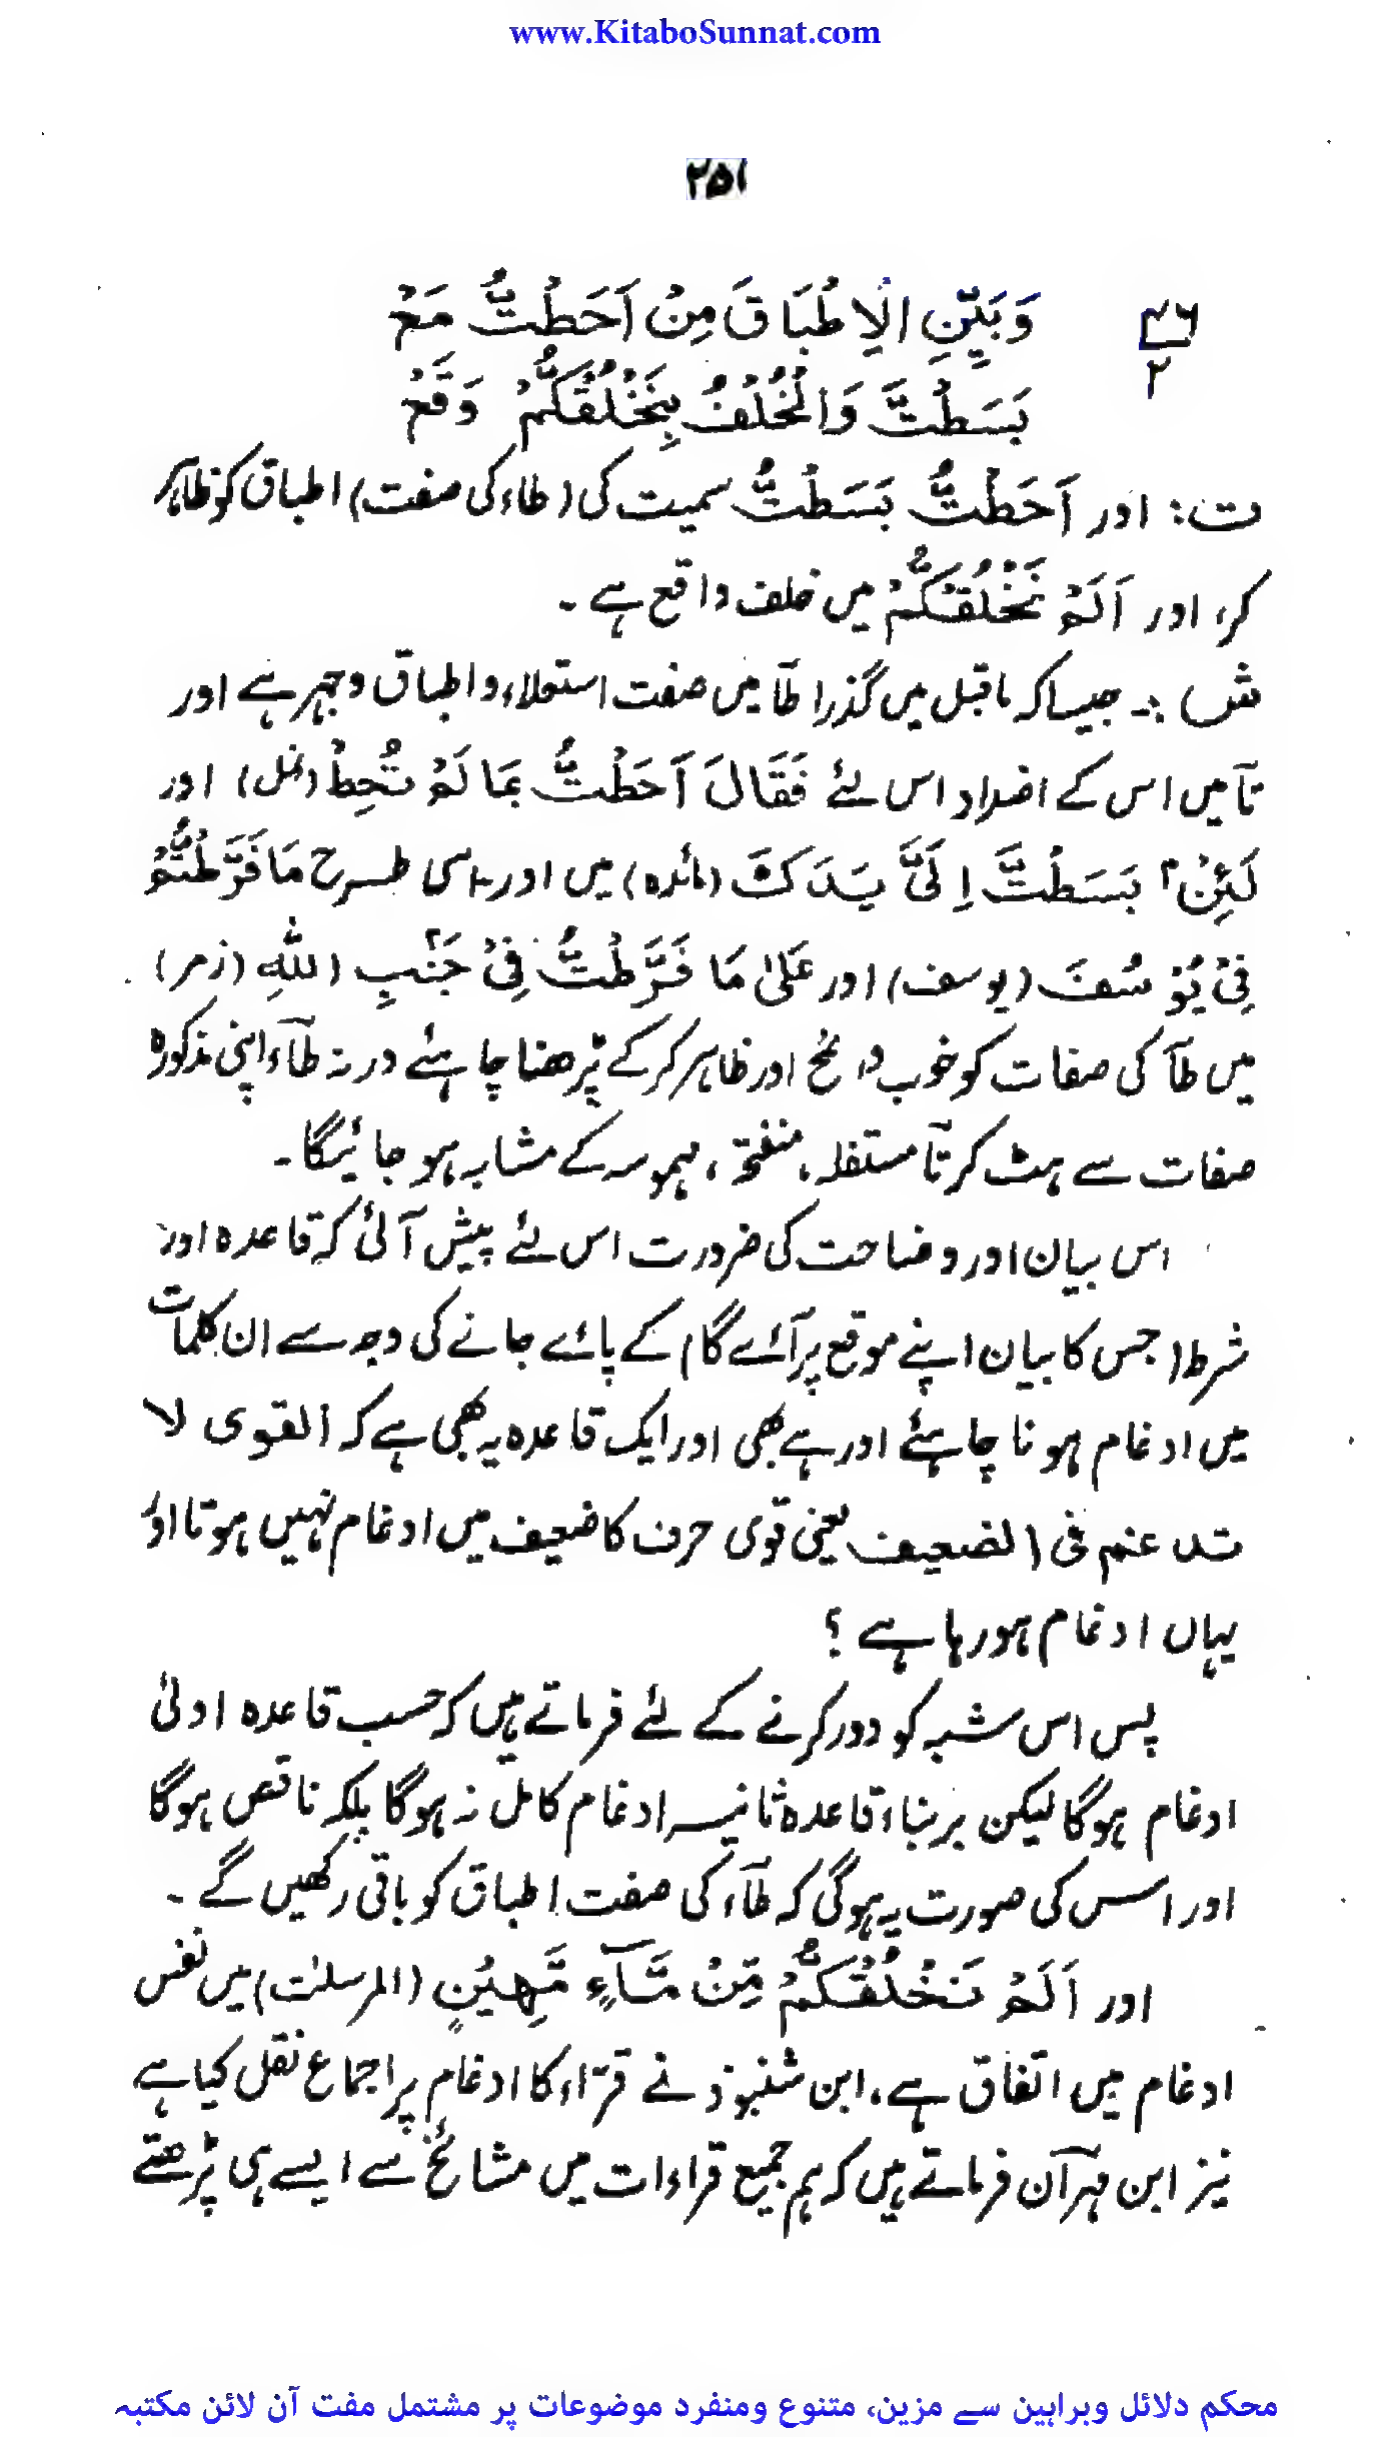 www.KitaboSunnat.com
۲۵۱
۴۶
۲
وَبَيِّنِ الْاِطْبَاقَ مِنْ اَحَطْتُّ مَعْ
بَسَطْتَّ وَالْخُلْفُ بِنَخْلُقْكُّمْ وَقَعْ
ت: اور اَحَطْتُّ بَسَطْتُّ سمیت کی (طاء کی صفت) اطباق کو ظاہر
کر، اور اَلَمْ نَخْلُقْكُّمْ میں خلف واقع ہے ۔
ش :۔ جیسا کہ ماقبل میں گذرا طآ میں صفت استعلاء و اطباق و جہر ہے اور
تآ میں اس کے اضداد اس لئے فَقَالَ اَحَطْتُّ بِمَا لَمْ تُحِطْ (نمل) اور
لَئِنْۢ بَسَطْتَّ اِلَیَّ یَدَكَ (مائدہ) میں اور اسی طرح مَا فَرَّطْتُّمْ
فِیْ یُوْسُفَ (یوسف) اور عَلٰی مَا فَرَّطْتُّ فِیْ جَنْۢبِ اللّٰهِ (زمر)
میں طآ کی صفات کو خوب واضح اور ظاہر کرکے پڑھنا چاہئے ورنہ طآء اپنی مذکورہ
صفات سے ہٹ کر تآ مستفلہ، منفتحہ، مہموسہ کے مشابہ ہو جائیگا۔
اس بیان اور وضاحت کی ضرورت اس لئے پیش آئی کہ قاعدہ اور
شرط (جس کا بیان اپنے موقع پر آئے گا) کے پائے جانے کی وجہ سے ان کلمات
میں ادغام ہونا چاہئے اور ہے بھی اور ایک قاعدہ یہ بھی ہے کہ القوی لا
تدغم فی الضعیف یعنی قوی حرف کا ضعیف میں ادغام نہیں ہوتا اور
یہاں ادغام ہورہا ہے ؟
پس اس شبہ کو دور کرنے کے لئے فرماتے ہیں کہ حسب قاعدہ اولیٰ
ادغام ہوگا لیکن بربناء قاعدہ ثانیہ ادغام کامل نہ ہوگا بلکہ ناقص ہوگا
اور اسکی صورت یہ ہوگی کہ طآء کی صفت اطباق کو باقی رکھیں گے ۔
اور اَلَمْ نَخْلُقْكُّمْ مِّنْ مَّآءٍ مَّهِیْنٍ (المرسلٰت) میں نفس
ادغام میں اتفاق ہے، ابن شنبوذ نے قرّاء کا ادغام پر اجماع نقل کیا ہے
نیز ابن مہرآن فرماتے ہیں کہ ہم جمیع قراءات میں مشائخ سے ایسے ہی پڑھتے
محکم دلائل وبراہین سے مزین، متنوع ومنفرد موضوعات پر مشتمل مفت آن لائن مکتبہ